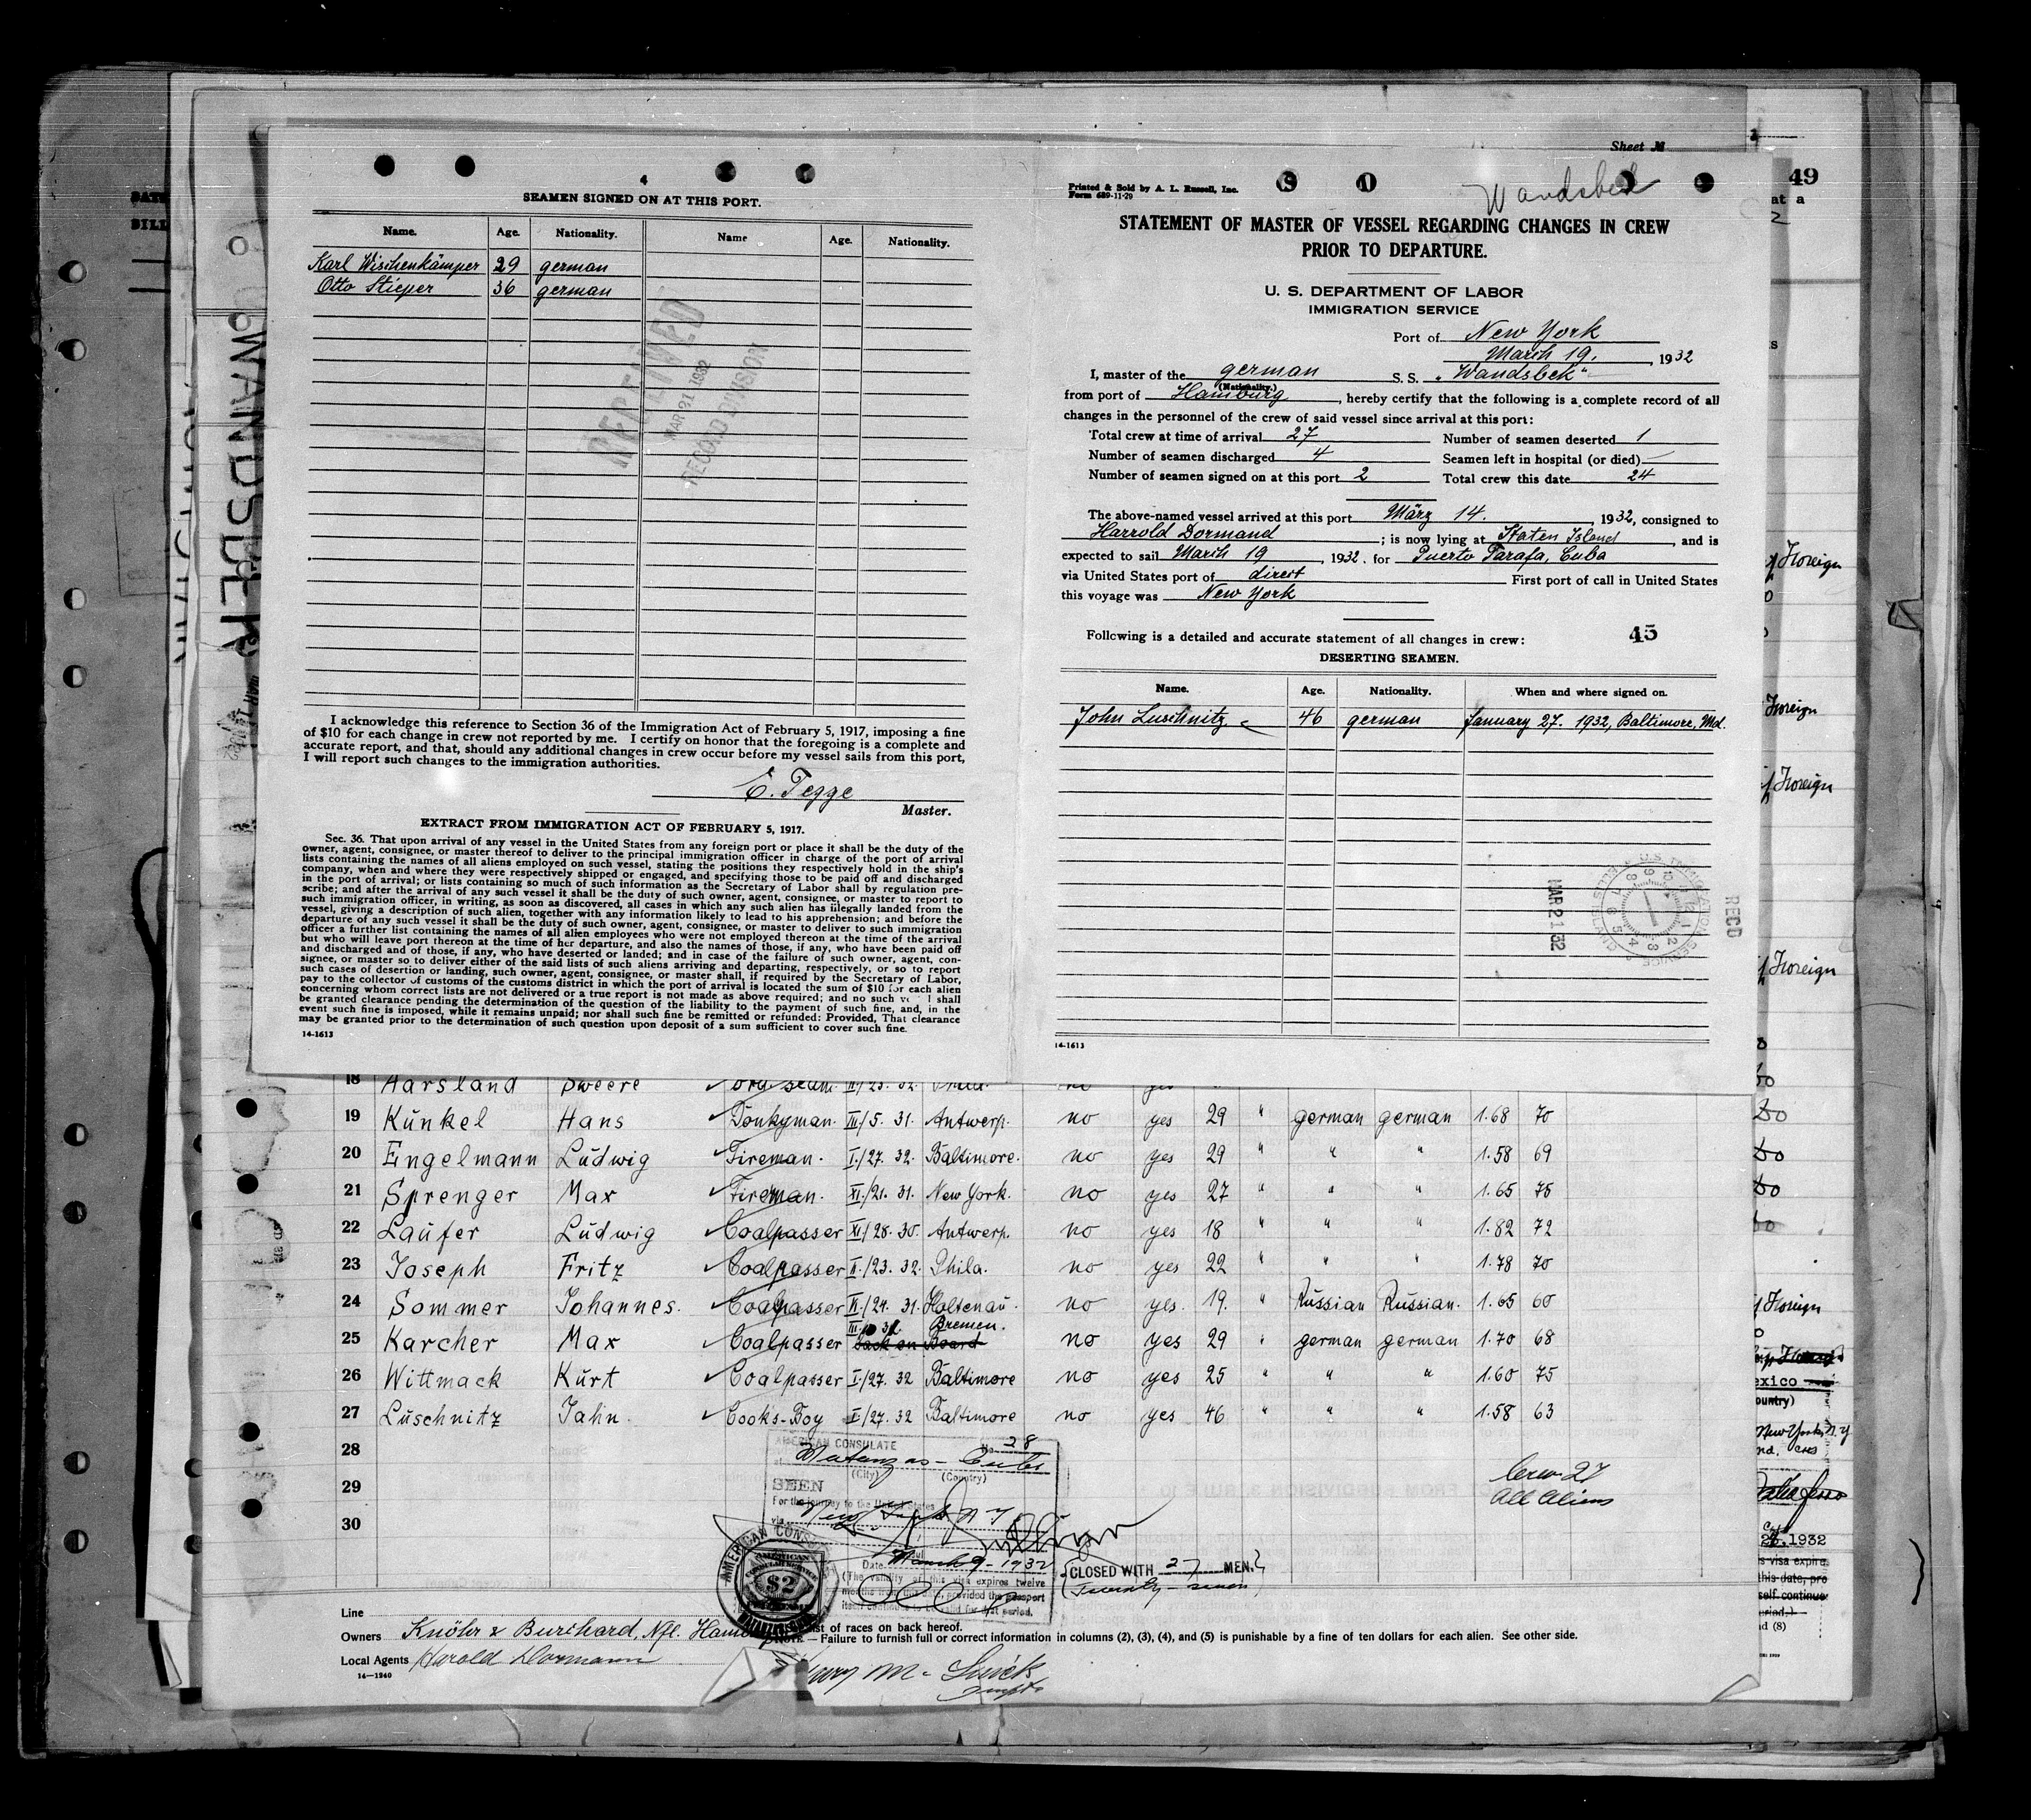 4
SEAMEN SIGNED ON AT THIS PORT.
Name. Age. Nationality. Name Age. Nationality.
Karl Wischenkämper 29 german
Otto Stieper 36 german
RECEIVED
MAR 21 1932
RECORD DIVISION
I acknowledge this reference to Section 36 of the Immigration Act of February 5, 1917, imposing a fine
of $10 for each change in crew not reported by me. I certify on honor that the foregoing is a complete and
accurate report, and that, should any additional changes in crew occur before my vessel sails from this port,
I will report such changes to the immigration authorities.
E. Tegge
Master.
EXTRACT FROM IMMIGRATION ACT OF FEBRUARY 5, 1917.
Sec. 36. That upon arrival of any vessel in the United States from any foreign port or place it shall be the duty of the
owner, agent, consignee, or master thereof to deliver to the principal immigration officer in charge of the port of arrival
lists containing the names of all aliens employed on such vessel, stating the positions they respectively hold in the ship's
company, when and where they were respectively shipped or engaged, and specifying those to be paid off and discharged
in the port of arrival; or lists containing so much of such information as the Secretary of Labor shall by regulation pre-
scribe; and after the arrival of any such vessel it shall be the duty of such owner, agent, consignee, or master to report to
such immigration officer, in writing, as soon as discovered, all cases in which any such alien has illegally landed from the
vessel, giving a description of such alien, together with any information likely to lead to his apprehension; and before the
departure of any such vessel it shall be the duty of such owner, agent, consignee, or master to deliver to such immigration
officer a further list containing the names of all alien employees who were not employed thereon at the time of the arrival
but who will leave port thereon at the time of her departure, and also the names of those, if any, who have been paid off
and discharged and of those, if any, who have deserted or landed; and in case of the failure of such owner, agent, con-
signee, or master so to deliver either of the said lists of such aliens arriving and departing, respectively, or so to report
such cases of desertion or landing, such owner, agent, consignee, or master shall, if required by the Secretary of Labor,
pay to the collector of customs of the customs district in which the port of arrival is located the sum of $10 for each alien
concerning whom correct lists are not delivered or a true report is not made as above required; and no such v l shall
be granted clearance pending the determination of the question of the liability to the payment of such fine, and, in the
event such fine is imposed, while it remains unpaid; nor shall such fine be remitted or refunded: Provided, That clearance
may be granted prior to the determination of such question upon deposit of a sum sufficient to cover such fine.
14-1613
Sheet
49
Printed & Sold by A. L. Russell, Inc.
Form 689-11-29
Wandsbek
STATEMENT OF MASTER OF VESSEL REGARDING CHANGES IN CREW
PRIOR TO DEPARTURE.
U. S. DEPARTMENT OF LABOR
IMMIGRATION SERVICE
Port of New York
March 19. , 1932
I, master of the german S. S. "Wandsbek"
(Nationality.)
from port of Hamburg , hereby certify that the following is a complete record of all
changes in the personnel of the crew of said vessel since arrival at this port:
Total crew at time of arrival 27 Number of seamen deserted 1
Number of seamen discharged 4 Seamen left in hospital (or died) —
Number of seamen signed on at this port 2 Total crew this date 24
The above-named vessel arrived at this port März 14. , 1932, consigned to
Harrold Dormand ; is now lying at Staten Island , and is
expected to sail March 19 , 1932. for Puerto Tarafa, Cuba
via United States port of direct First port of call in United States
this voyage was New York
Following is a detailed and accurate statement of all changes in crew: 45
DESERTING SEAMEN.
Name. Age. Nationality. When and where signed on.
John Luschnitz 46 german January 27. 1932, Baltimore, Md.
REC'D
MAR 21 32
14-1613
WANDSBEK
18 Aarsland Sweere Ord. seam. II/23. 32. Phila. no yes
19 Künkel Hans Donkyman. III/5. 31. Antwerp. no yes 29 " german german 1.68 70
20 Engelmann Lüdwig Fireman. I/27. 32. Baltimore. no yes 29 " " " 1.58 69
21 Sprenger Max Fireman. XI/21. 31. New York. no yes 27 " " " 1.65 75
22 Laufer Lüdwig Coalpasser XI/28. 30. Antwerp. no yes 18 " " " 1.82 72
23 Joseph Fritz Coalpasser II/23. 32. Phila. no yes 22 " " " 1.78 70
24 Sommer Johannes. Coalpasser XI/24. 31. Holtenau. no yes. 19. " Russian Russian. 1.65 60
Bremen.
25 Karcher Max Coalpasser no yes 29 " german german 1.70 68
26 Wittmack Kürt Coalpasser I/27. 32 Baltimore no yes 25 " " " 1.60 75
27 Lüschnitz Jahn. Cooks-Boy I/27. 32 Baltimore no yes 46 " " " 1.58 63
28
29
30
AMERICAN CONSULATE No. 28
at Matanzas - Cuba
(City) (Country)
SEEN
For the journey to the United States
via
Date March 9 - 1932
(The validity of this visa expires twelve
months from this date, provided the passport
itself continues to be valid for that period.
AMERICAN CONSULATE
$2
Crew 27
All Aliens
CLOSED WITH 27 MEN.
Twenty-seven
Line
Owners Knöhr & Burchard, Nfl.
Local Agents Harold Dormann
14—1240
list of races on back hereof.
NOTE—Failure to furnish full or correct information in columns (2), (3), (4), and (5) is punishable by a fine of ten dollars for each alien. See other side.
Foreign
Foreign
Foreign
Foreign
Foreign
New York, N.Y
1932